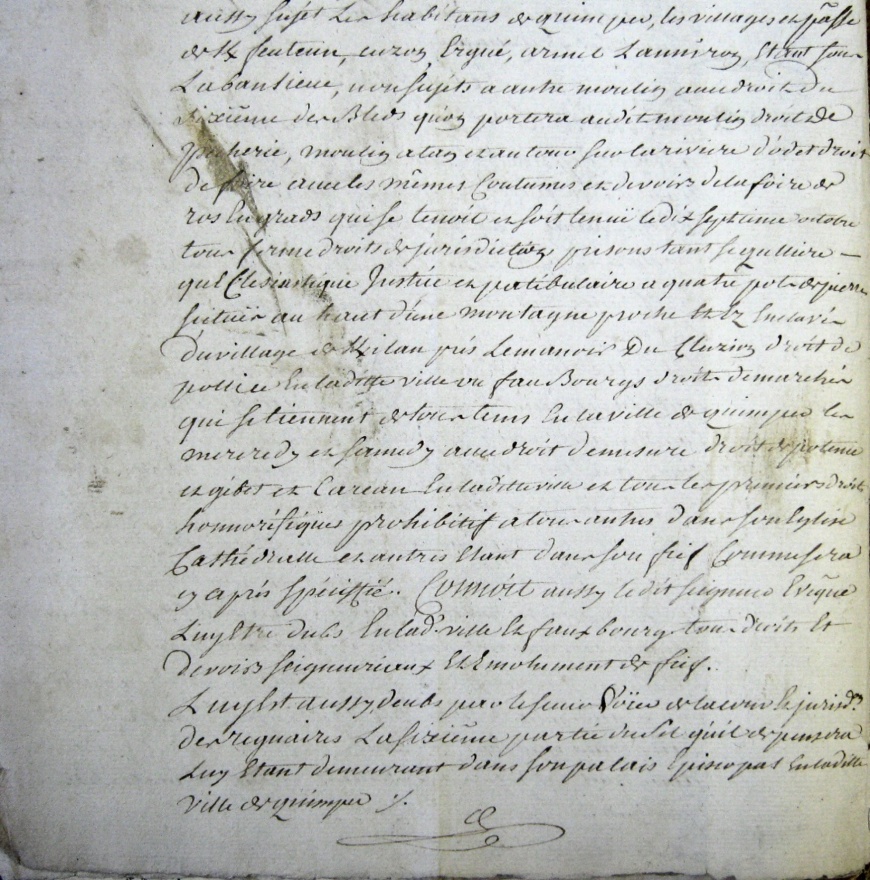 aussy sujet les habitans de quimper, les villages en p̃asse
de K feuteun, cuzon Ergué, armel Lannivron, Etant sous
La banlieue, non sujets a autre moulin avec droit du
sixiéme des Bleds qu'on portera audit moulin droit de
pecherie, moulin a tan et autour sur la riviere d'odet droit
de foire avec les mêmes Coutumes et devoirs de la foire de
ros Lugrads qui se tenoit et soit tenuë le dix septieme octobre
tous ferme droits de jurisdiction prisons tant seculliere –
qu'Eclesiastique Justice et patibulaire a quatre pots de pierre
situëe au haut d'une montagne proche Et Enclavée
du village de Kilan prés Le manoir Du Cluziou droit de
pollice En laditte ville ou faux Bourgs droit de marchés
qui se tiennent de tous tems En la ville de quimper les
mercredy et samedy avec droit de mesure droit de potence
et gibet et Careau En laditte ville et tous les premiers droits
honnorifiques prohibitif a tous autres dans son Eglise
Cathédralle et autres Etant dans son fief Comme sera
cy aprés spéciffié. Connoit aussy ledit seigneur Evêque
Luy Etre dubs En lad. ville Et faux bourgs tous droits Et
devoirs seigneuriaux Et Emolument de fief.
Luy Est aussy deubs par le feage Voïer de la cour Et jurisdon
des reguaires La sixiéme partie du sel qu'il depensera
Luy Etant demeurant dans son palais Episcopal En laditte
ville de quimper ·/.